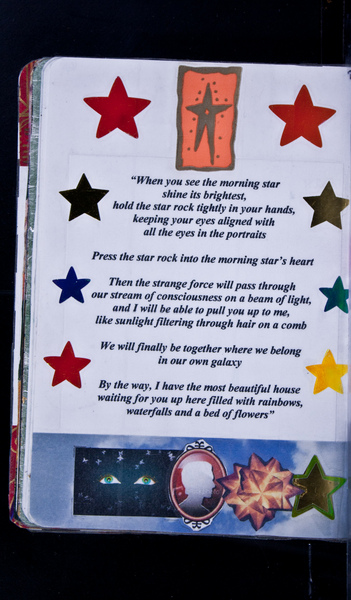 “When you see the morning star
shine its brightest,
hold the star rock tightly in your hands,
keeping your eyes aligned with
all the eyes in the portraits
Press the star rock into the morning star’s heart
Then the strange force will pass through
our stream of consciousness on a beam of light,
and I will be able to pull you up to me,
like sunlight filtering through hair on a comb
We will finally be together where we belong
in our own galaxy
By the way, I have the most beautiful house
waiting for you up here filled with rainbows,
waterfalls and a bed of flowers”